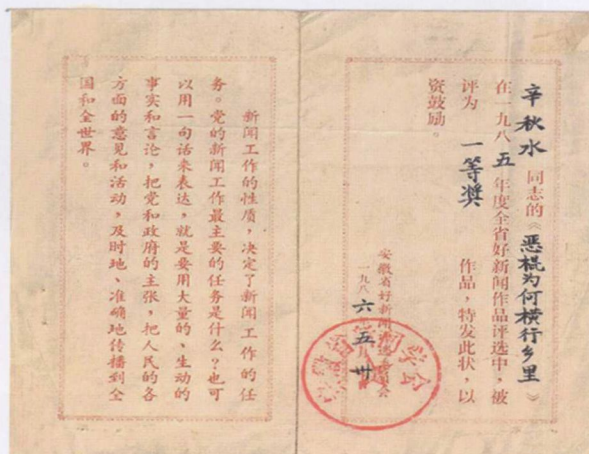 辛秋水同志的《恶棍为何横行乡里》
在一九八五年度全省好新闻作品评选中，被
评为一等奖作品，特发此状，以
资鼓励。
安徽省好新闻
一九八六 五 卅
新闻工作的性质，决定了新闻工作的任
务。党的新闻工作最主要的任务是什么？也可
以用一句话来表达，就是要用大量的、生动的
事实和言论，把党和政府的主张，把人民的各
方面的意见和活动，及时地、准确地传播到全
国和全世界。